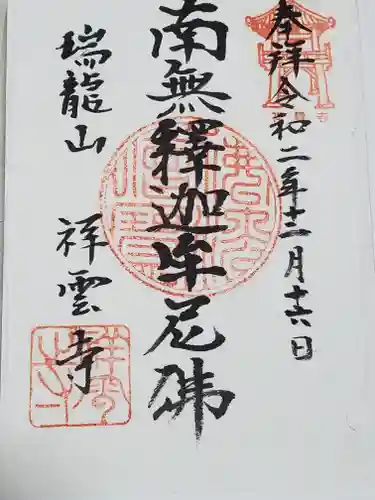 奉拝 令和二年十二月十六日
南無釋迦牟尼佛
瑞龍山 祥雲寺